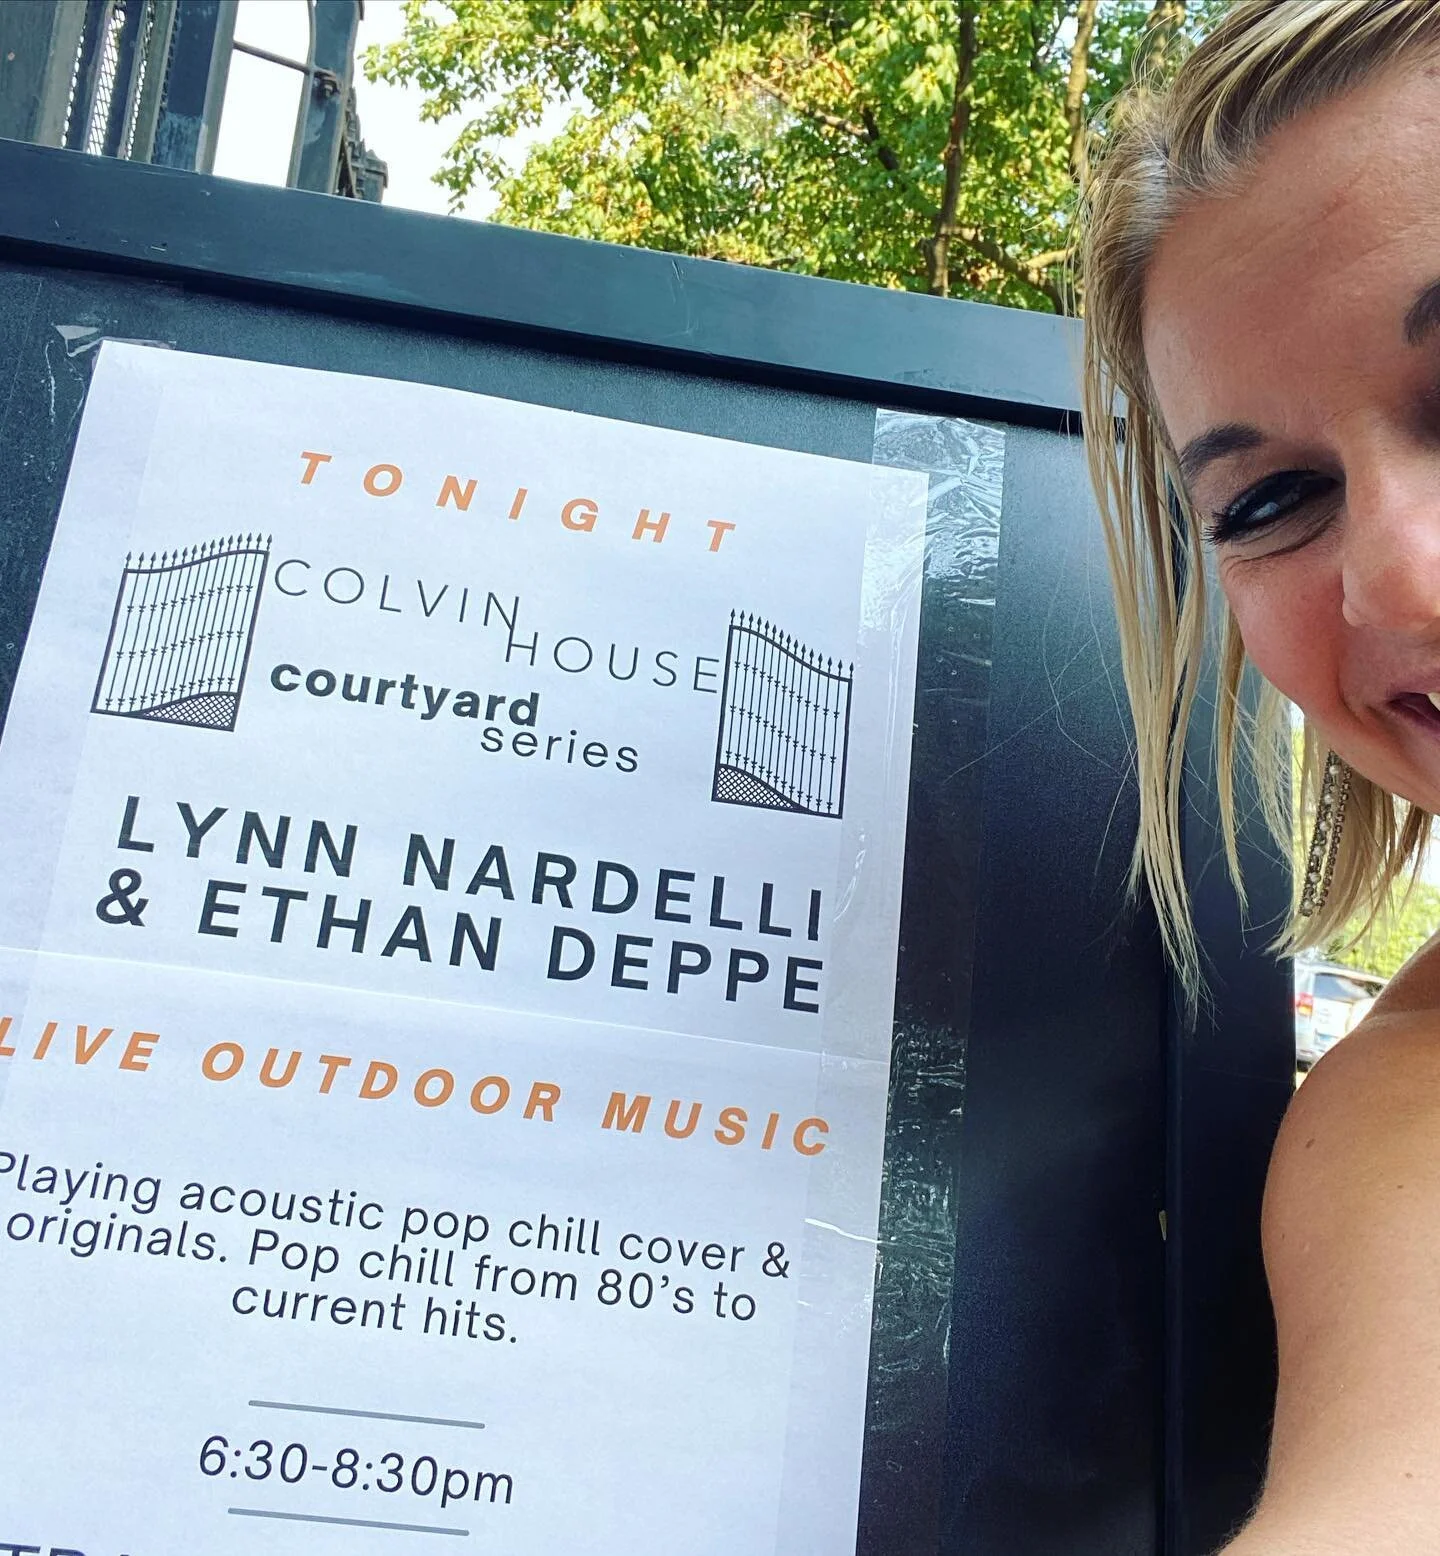 TONIGHT
COLVIN
HOUSE
courtyard
series
LYNN NARDELLI
& ETHAN DEPPE
LIVE OUTDOOR MUSIC
Playing acoustic pop chill cover &
originals. Pop chill from 80's to
current hits.
6:30-8:30pm